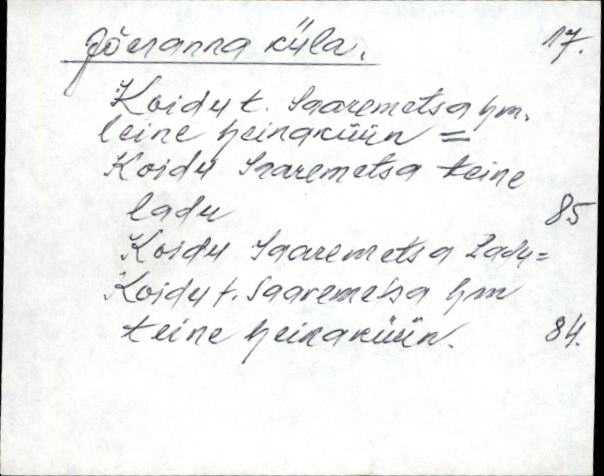 Jõeranna küla. 17.
Koidu t. Saaremetsa hm.
teine heinaküün =
Koidu Saaremetsa teine
ladu 85
Koidu Saaremetsa Ladu=
Koidu t. Saaremetsa hm
teine heinaküün. 84.